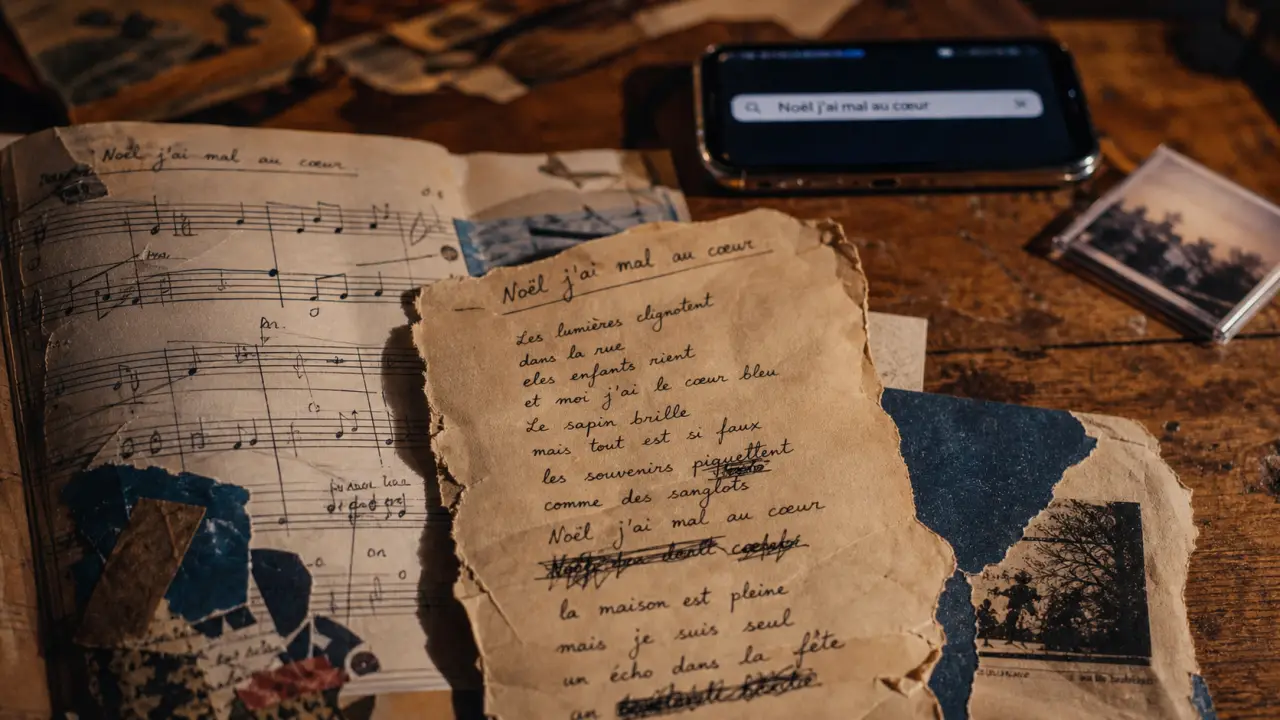 Noël j'ai mal au cœur
Noël j'ai mal au cœur
Noël j'ai mal au cœur
Les lumières clignotent
dans la rue
eles enfants rient
et moi j'ai le cœur bleu
Le sapin brille
mais tout est si faux
les souvenirs piquettent
comme des sanglots
Noël j'ai mal au cœur
la maison est pleine
mais je suis seul
un écho dans la fête
an
on